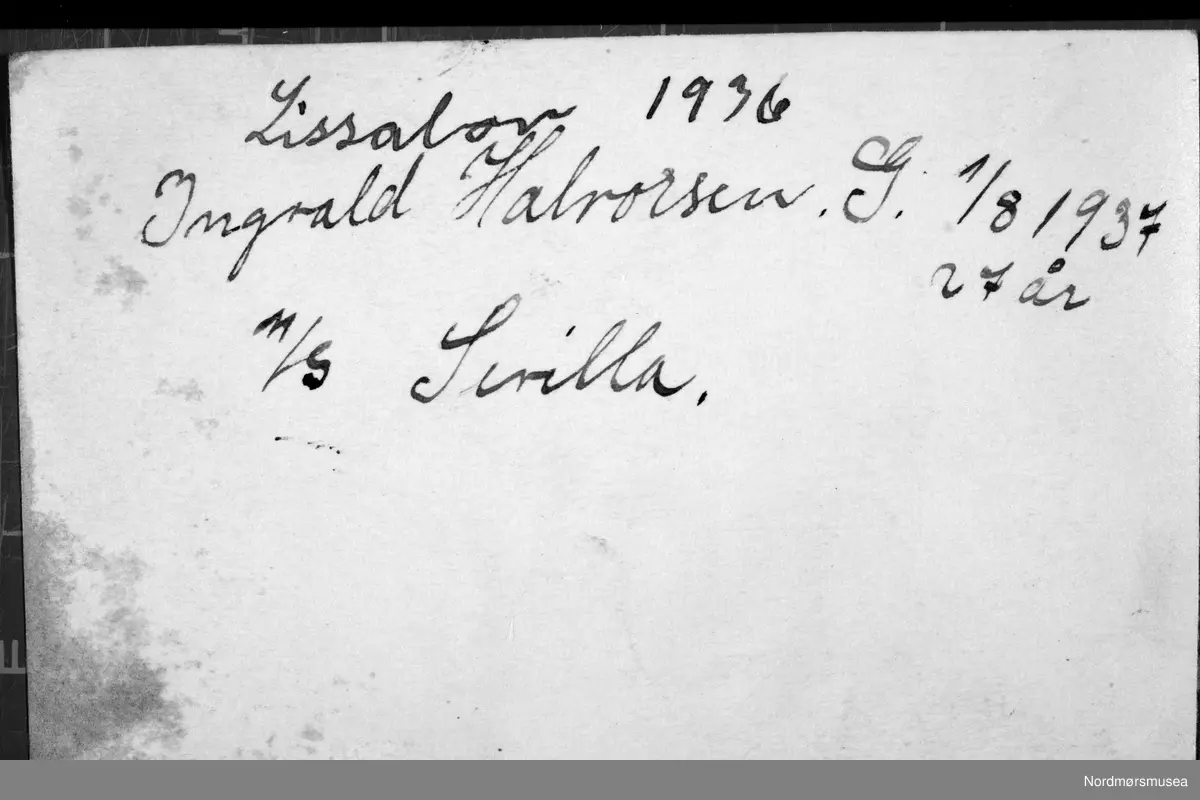 Lissabon 1936
Ingvald Halvorsen. G. 1/8 1937
27 år
M/S Sevilla.
Nordmørsmusea